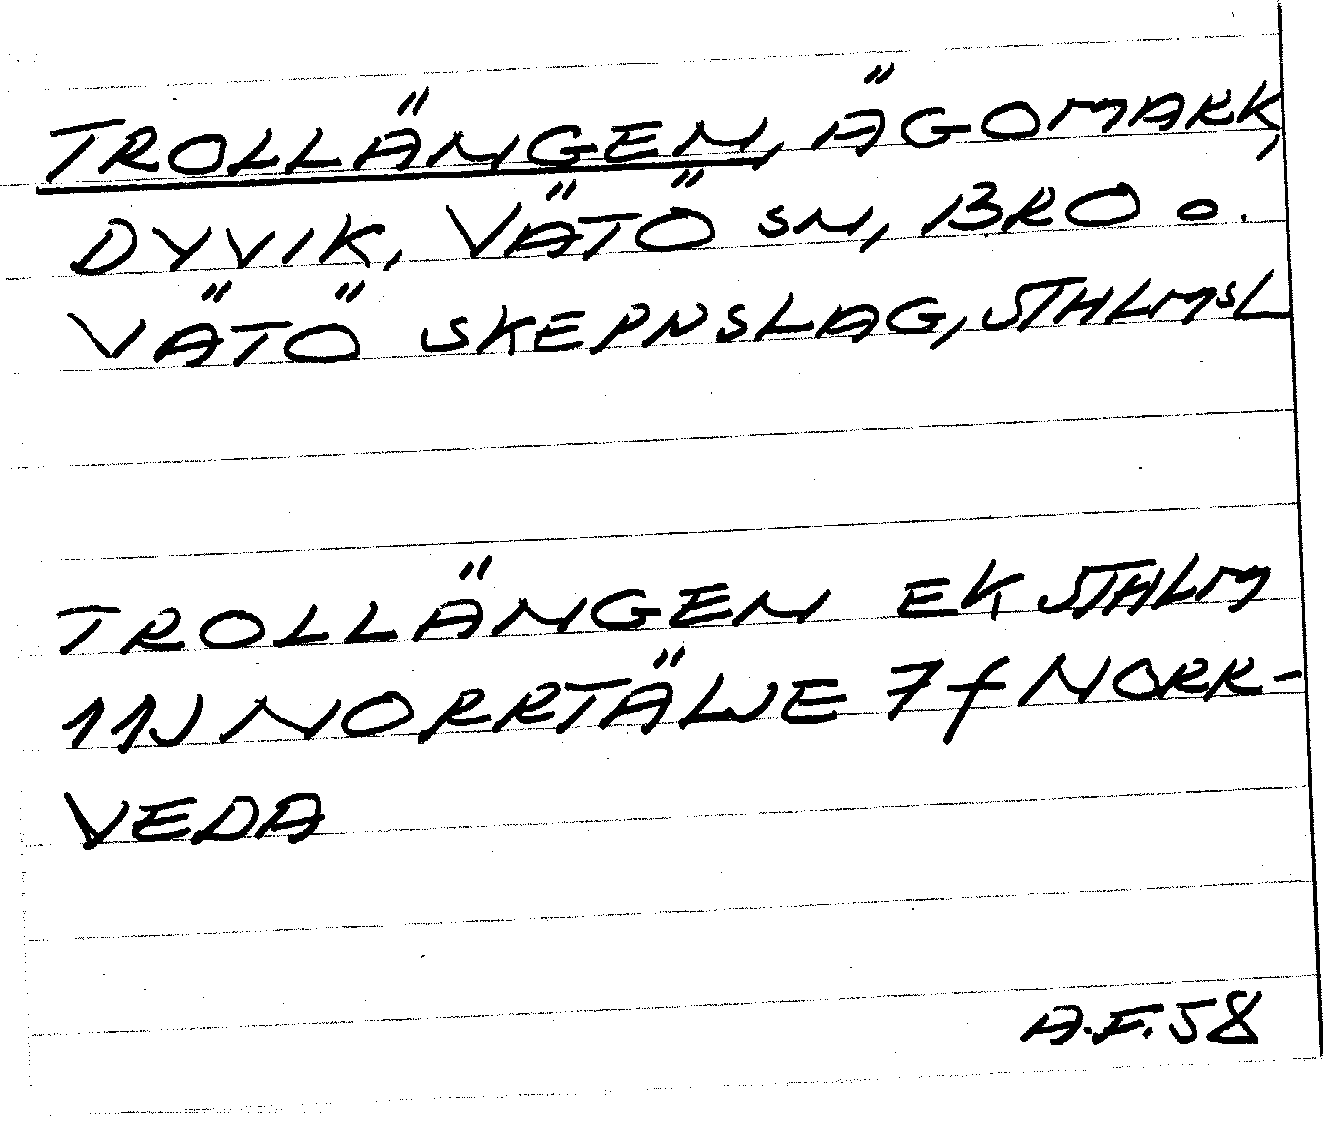 TROLLÄNGEN, ÄGOMARK,
DYVIK, VÄTÖ SN, BRO O.
VÄTÖ SKEPNSLAG, STHLMSL
TROLLÄNGEN EK STHLM
11J NORRTÄLJE 7f NORR-
VEDA
A.F.58